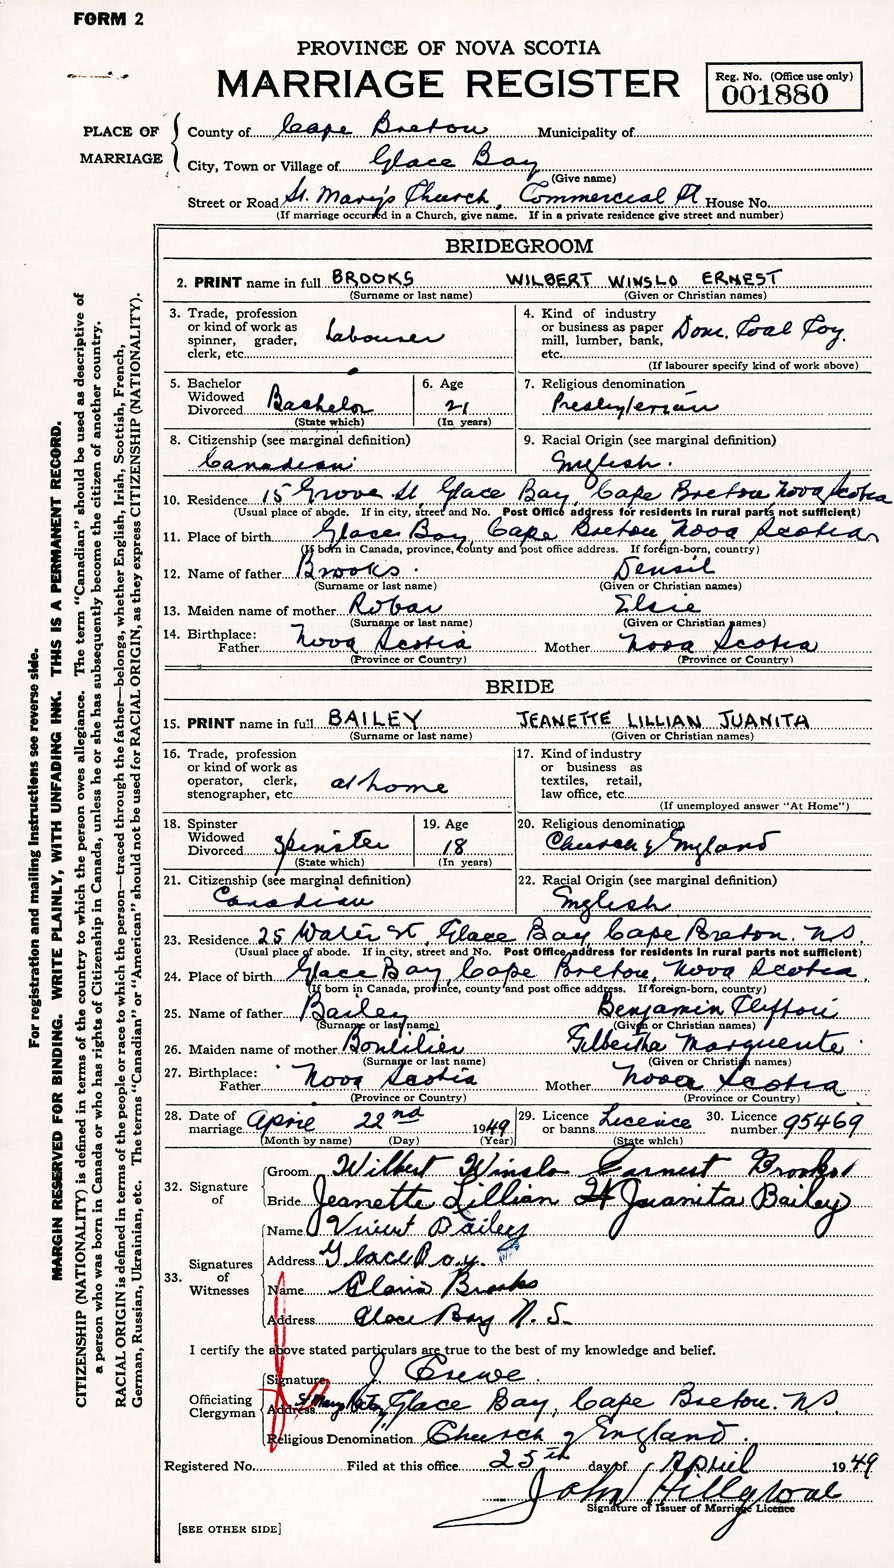 FORM 2
PROVINCE OF NOVA SCOTIA
MARRIAGE REGISTER
Reg. No. (Office use only)
001880
PLACE OF MARRIAGE
County of Cape Breton Municipality of
City, Town or Village of Glace Bay
(Give name)
Street or Road St. Mary's Church, Commercial St House No.
(If marriage occurred in a Church, give name. If in a private residence give street and number)
BRIDEGROOM
2. PRINT name in full BROOKS WILBERT WINSLO ERNEST
(Surname or last name) (Given or Christian names)
3. Trade, profession or kind of work as spinner, grader, clerk, etc. Labourer
4. Kind of industry or business as paper mill, lumber, bank, etc. Dom. Coal Coy.
(If labourer specify kind of work above)
5. Bachelor Widowed Divorced Bachelor
(State which)
6. Age 21
(In years)
7. Religious denomination Presbyterian
8. Citizenship (see marginal definition) Canadian
9. Racial Origin (see marginal definition) English.
10. Residence 15 Grove St, Glace Bay, Cape Breton Nova Scotia
(Usual place of abode. If in city, street and No. Post Office address for residents in rural parts not sufficient)
11. Place of birth Glace Bay, Cape Breton, Nova Scotia
(If born in Canada, province, county and post office address. If foreign-born, country)
12. Name of father Brooks Densil
(Surname or last name) (Given or Christian names)
13. Maiden name of mother Robar Elsie
(Surname or last name) (Given or Christian names)
14. Birthplace: Father Nova Scotia Mother Nova Scotia
(Province or Country) (Province or Country)
BRIDE
15. PRINT name in full BAILEY JEANETTE LILLIAN JUANITA
(Surname or last name) (Given or Christian names)
16. Trade, profession or kind of work as operator, clerk, stenographer, etc. at home
17. Kind of industry or business as textiles, retail, law office, etc.
(If unemployed answer "At Home")
18. Spinster Widowed Divorced Spinster
(State which)
19. Age 18
(In years)
20. Religious denomination Church of England
21. Citizenship (see marginal definition) Canadian
22. Racial Origin (see marginal definition) English
23. Residence 25 Water St, Glace Bay Cape Breton. N.S.
(Usual place of abode. If in city, street and No. Post Office address for residents in rural parts not sufficient)
24. Place of birth Glace Bay, Cape Breton, Nova Scotia.
(If born in Canada, province, county and post office address. If foreign-born, country)
25. Name of father Bailey Benjamin Clifton
(Surname or last name) (Given or Christian names)
26. Maiden name of mother Gilbertha Marguerite
(Surname or last name) (Given or Christian names)
27. Birthplace: Father Nova Scotia Mother Nova Scotia
(Province or Country) (Province or Country)
28. Date of marriage April 22nd 1949
(Month by name) (Day) (Year)
29. Licence or banns Licence
(State which)
30. Licence number 95469
32. Signature of
Groom Wilbert Winslo Earnest Brooks
Bride Jeanette Lillian Juanita Bailey
33. Signatures of Witnesses
Name Bailey
Address Glace Bay.
Name Gloria Brooks
Address Glace Bay N. S.
I certify the above stated particulars are true to the best of my knowledge and belief.
Officiating Clergyman
Signature J. Crewe.
Address Glace Bay, Cape Breton. N.S.
Religious Denomination Church of England.
Registered No. Filed at this office 25th day of April 1949
John
Signature of Issuer of Marriage Licence
[SEE OTHER SIDE]
For registration and mailing instructions see reverse side.
MARGIN RESERVED FOR BINDING. WRITE PLAINLY, WITH UNFADING INK. THIS IS A PERMANENT RECORD.
CITIZENSHIP (NATIONALITY) is defined in terms of the country to which the person owes allegiance. The term "Canadian" should be used as descriptive of
a person who was born in Canada or who has rights of Citizenship in Canada, unless he or she has subsequently become the citizen of another country.
RACIAL ORIGIN is defined in terms of the people or race to which the person—traced through the father—belongs, whether English, Irish, Scottish, French,
German, Russian, Ukrainian, etc. The terms "Canadian" or "American" should not be used for RACIAL ORIGIN, as they express CITIZENSHIP (NATIONALITY).